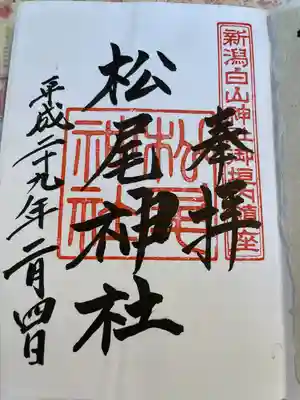 新潟白山神社御境内鎮座
奉拝
松尾神社
松尾
神社
平成二十九年二月四日